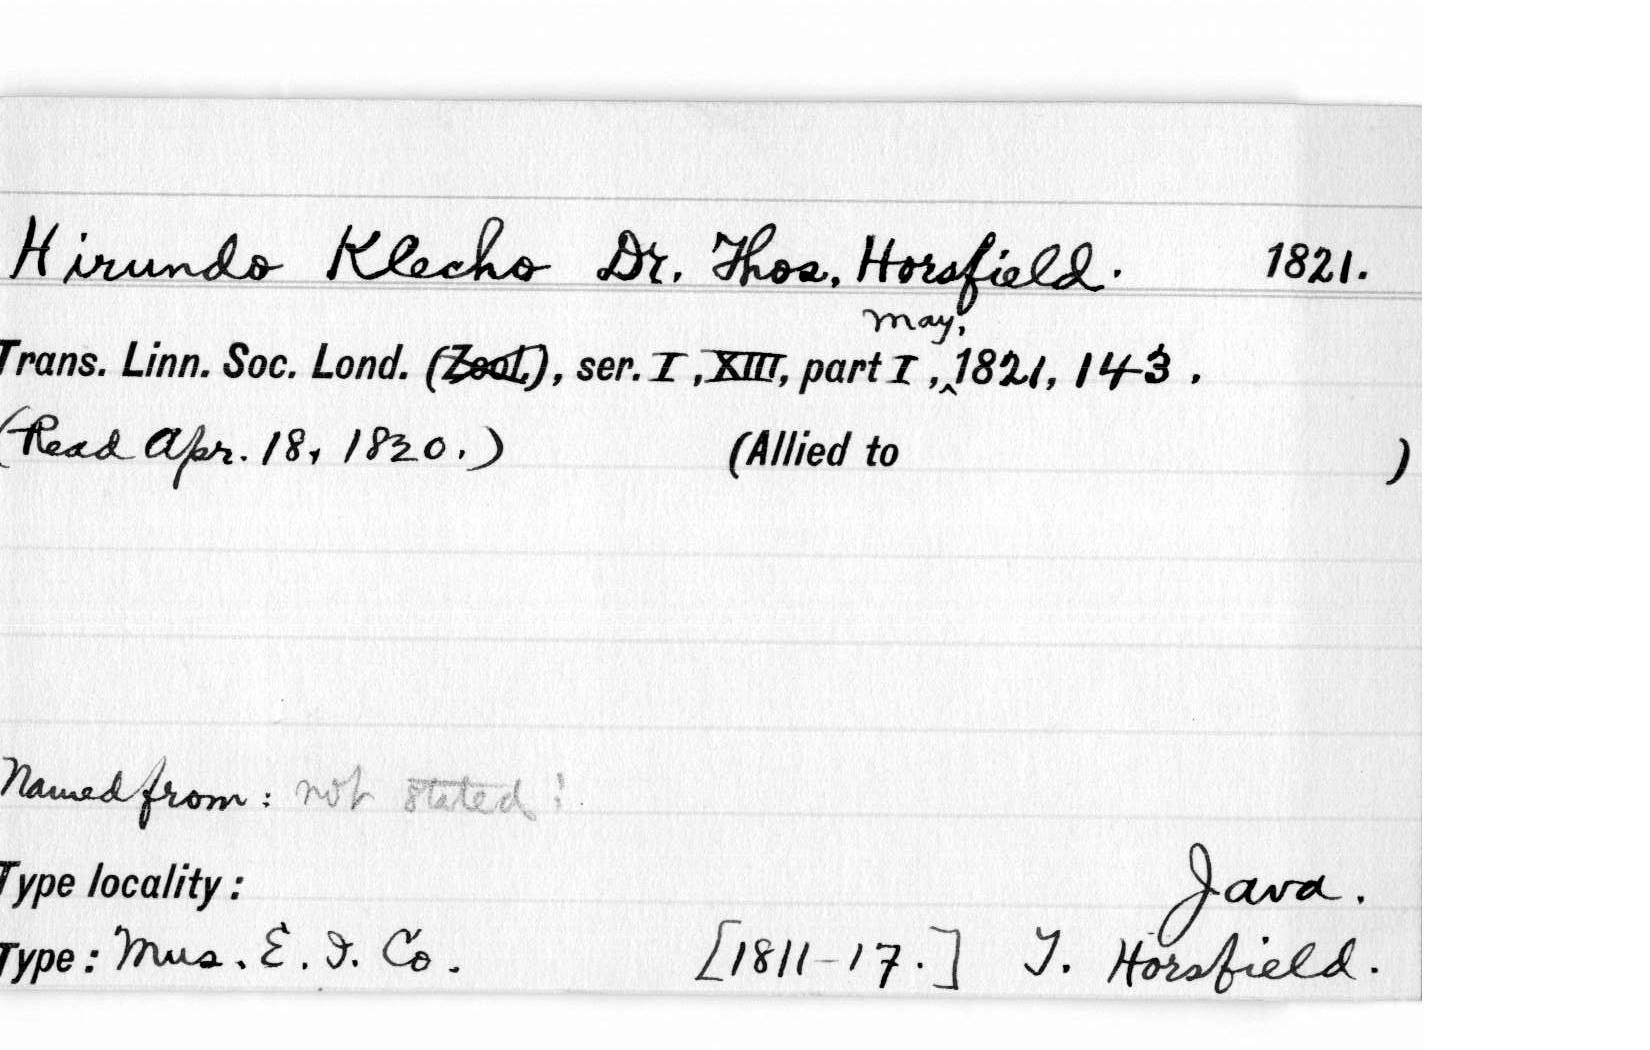 Hirundo Klecho Dr. Thos. Horsfield. 1821.
May,
Trans. Linn. Soc. Lond. (Zool.), ser. I, XIII, part I, 1821, 143.
(Read Apr. 18, 1820.) (Allied to )
Named from: not stated!
Type locality: Java.
Type: Mus. E. I. Co. [1811-17.] T. Horsfield.